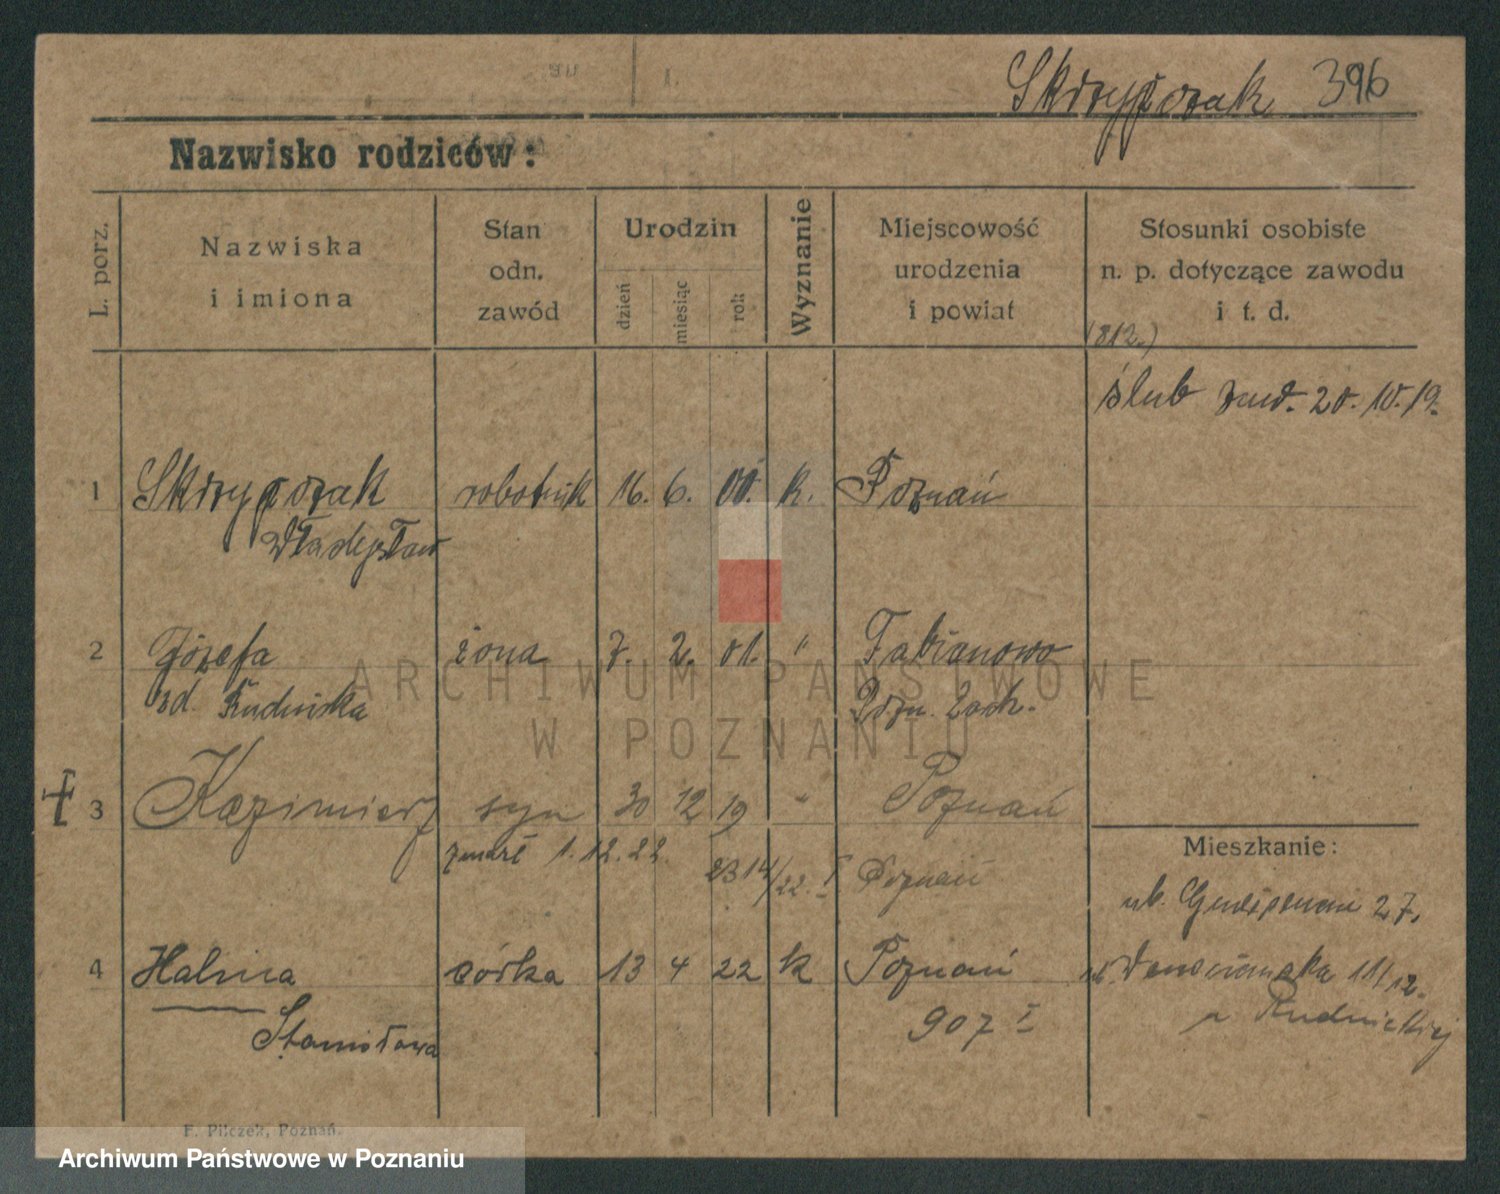 Skrzypczak 396
Nazwisko rodziców:
L. porz.
Nazwiska
i imiona
Stan
odn.
zawód
Urodzin
dzień
miesiąc
rok
Wyznanie
Miejscowość
urodzenia
i powiat
Stosunki osobiste
n. p. dotyczące zawodu
i t. d.
(812.)
ślub zaw. 20. 10. 19.
1 Skrzypczak robotnik 16. 6. 00. k. Poznań
Władysław
2 Józefa żona 7. 2. 01. " Fabianowo
zd. Rudnicka Pozn. Zach.
3 Kazimierz syn 30 12 19 " Poznań
zmarł 1. 12. 22 2314/22. I Poznań
Mieszkanie:
ul. 27.
4 Halina córka 13 4 22 k Poznań
ul. Wenecjańska 11/12.
Stanisława 907 I
u Rudnickiej
F. Pilczek, Poznań.
ARCHIWUM PAŃSTWOWE
W POZNANIU
Archiwum Państwowe w Poznaniu